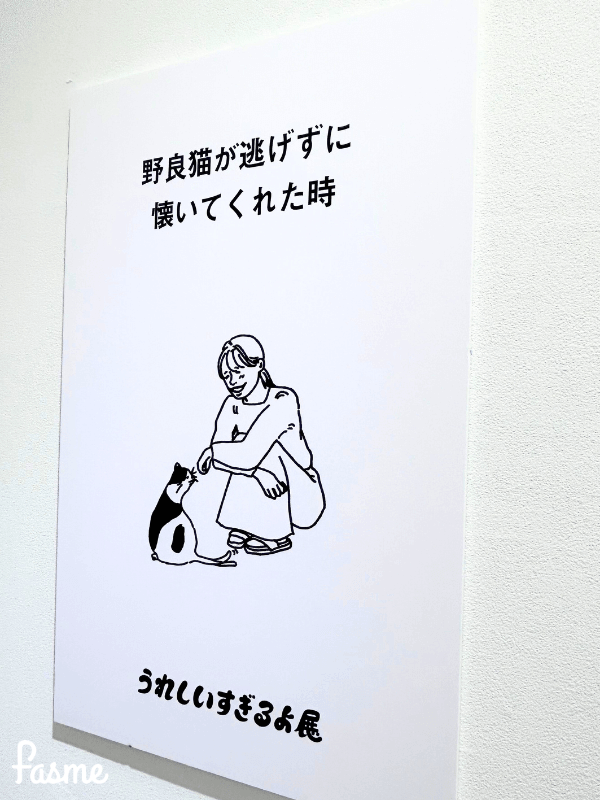 野良猫が逃げずに
懐いてくれた時
うれしいすぎるよ展
fasme